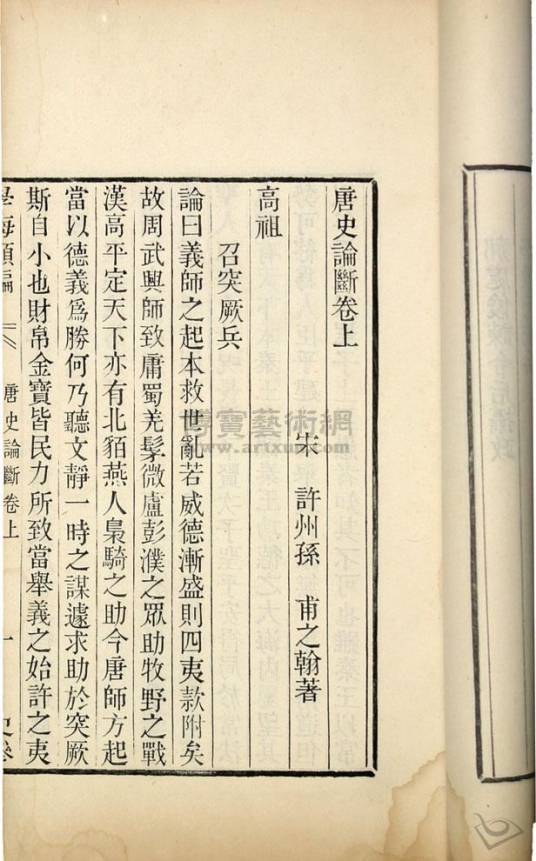 唐史論斷卷上
宋 許州孫 甫之翰著
高祖
召突厥兵
論曰義師之起本救世亂若威德漸盛則四夷款附矣
故周武興師致庸蜀羌髳微盧彭濮之眾助牧野之戰
漢高平定天下亦有北貊燕人梟騎之助今唐師方起
當以德義爲勝何乃聽文靜一時之謀遽求助於突厥
斯自小也財帛金寶皆民力所致當舉義之始許之夷
學海類編 唐史論斷卷上 一
博寶藝術網
www.artxun.com